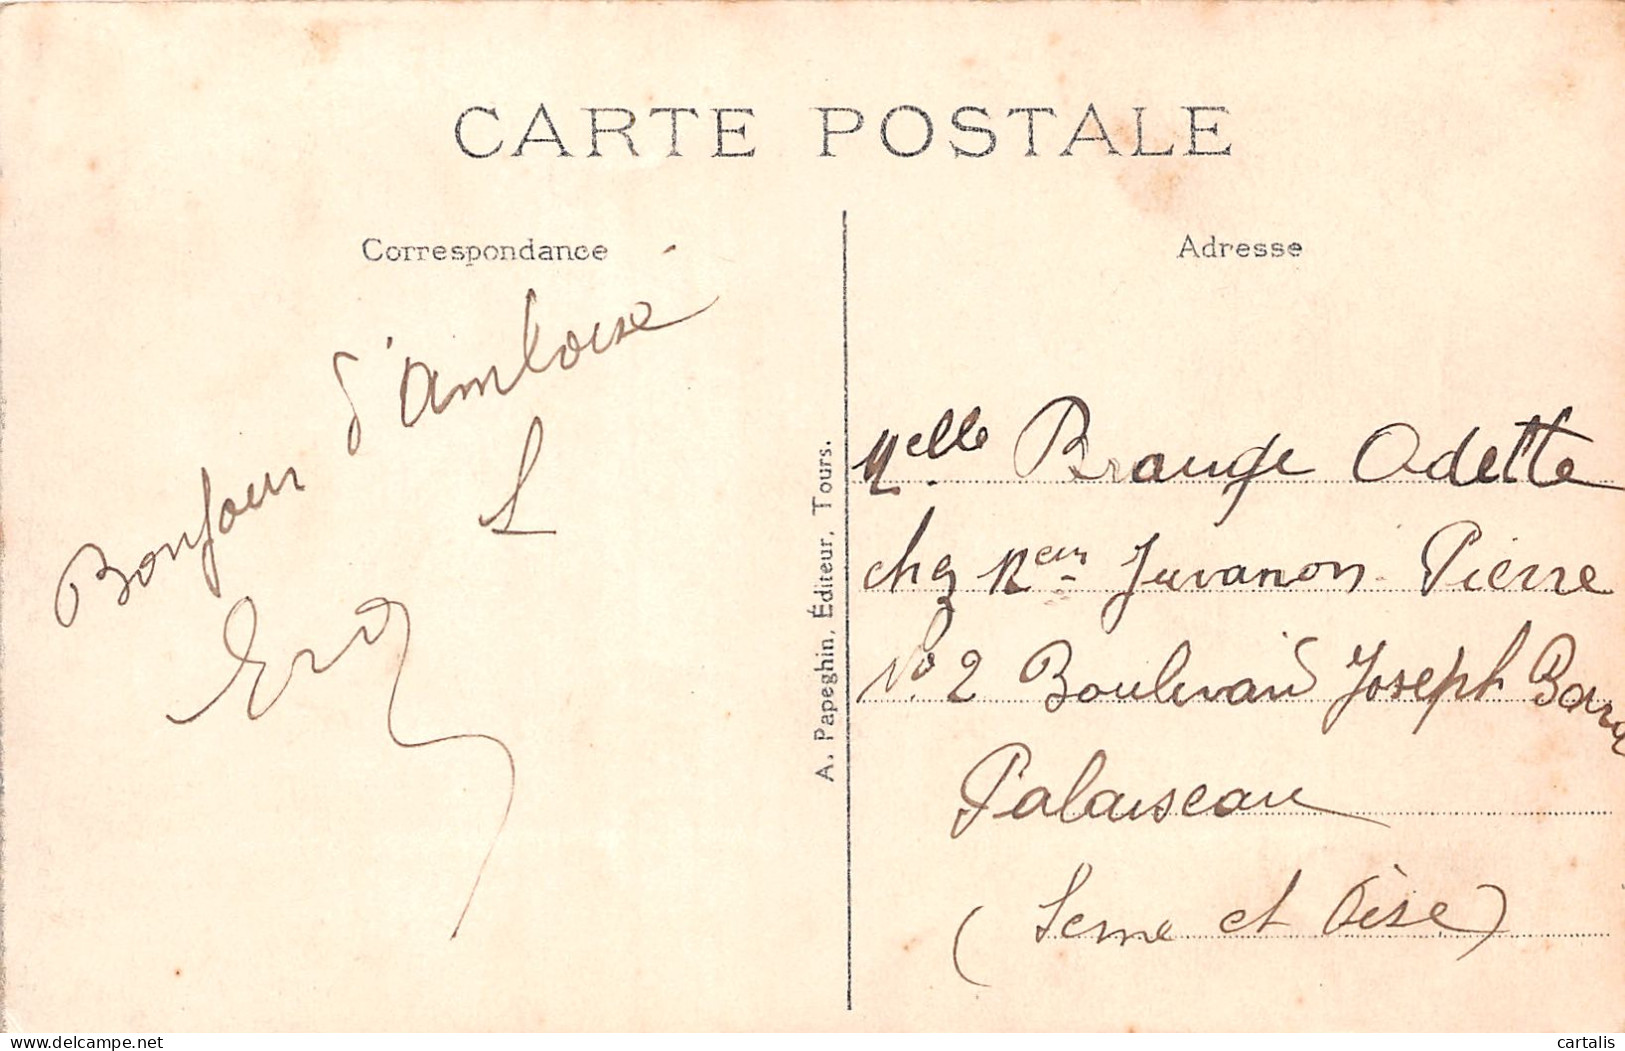 CARTE POSTALE
Correspondance
Adresse
Bonjour d'Amboise
L
A. Papeghin, Éditeur, Tours.
Melle Brauge Odette
chez Juvanon Pierre
No 2 Boulevard Joseph Bara
Palaiseau
(Seine et Oise)
delcampe.net
cartalis